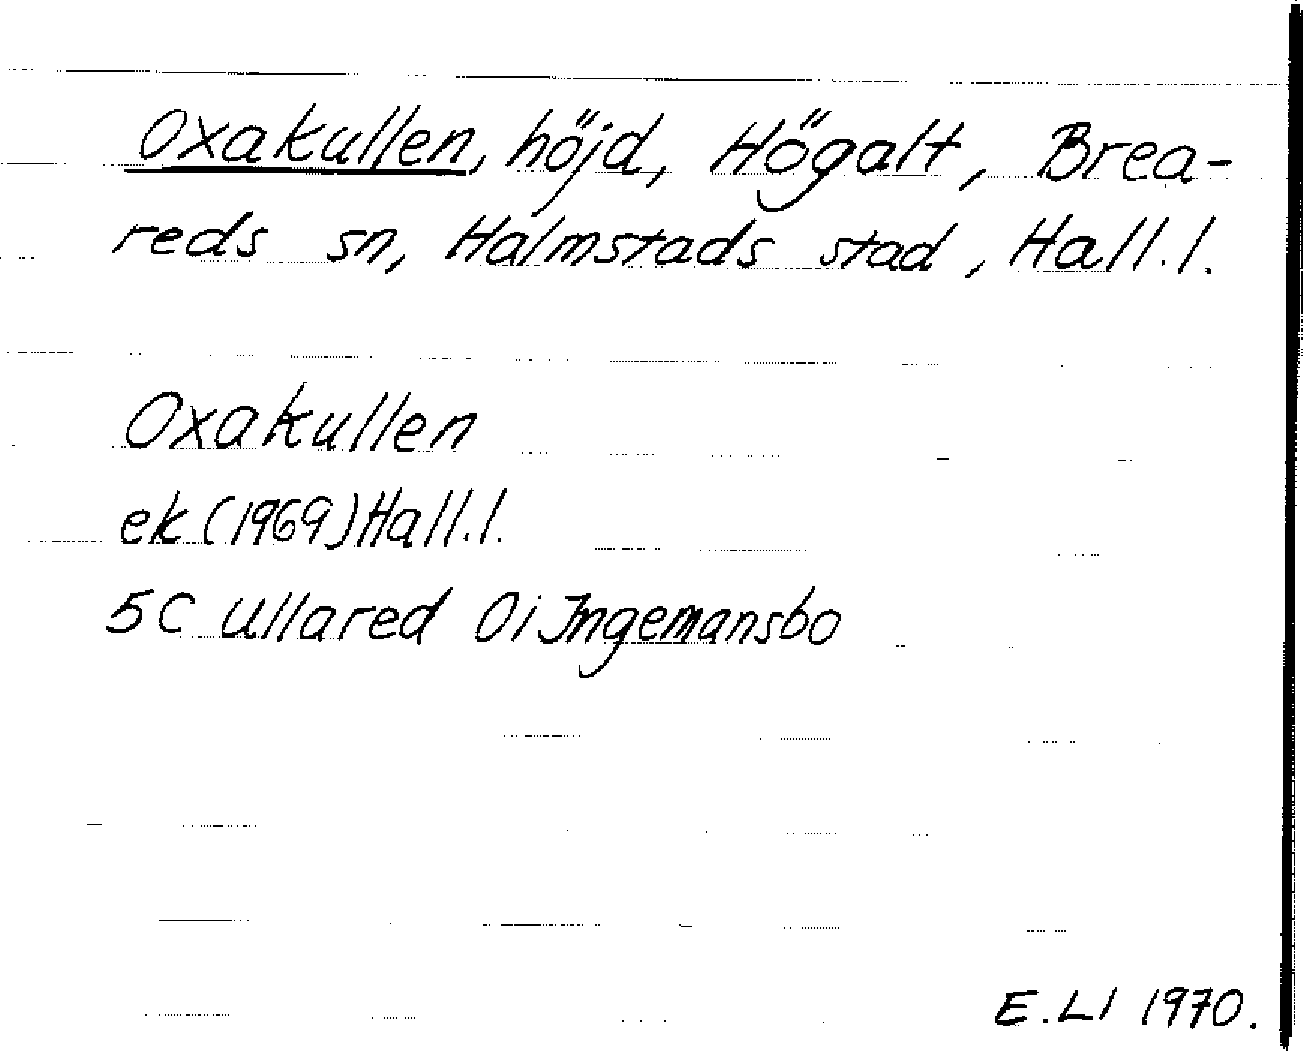 Oxakullen, höjd, Högalt, Brea-
reds sn, Halmstads stad, Hall.l.
Oxakullen
ek (1969) Hall.l.
5C Ullared 0i Ingemansbo
E.LI 1970.